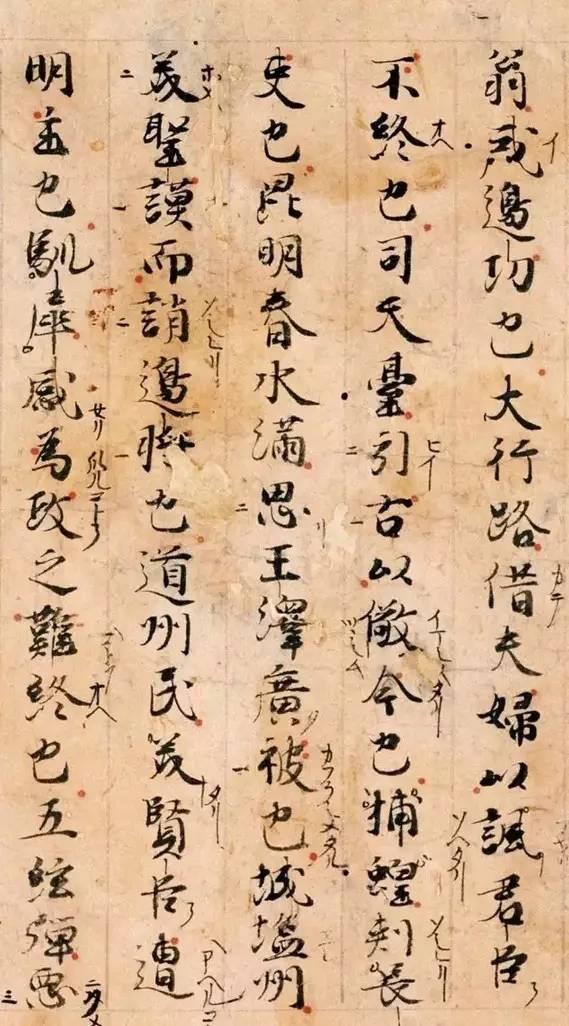 翁戒邊功也大行路借夫婦以諷君臣
不終也司天臺引古以儆今也捕蝗刺長
吏也昆明春水滿思王澤廣被也城塩州
美聖謨而誚邊將也道州民美賢臣遭
明主也馴犀感為政之難終也五絃彈惡